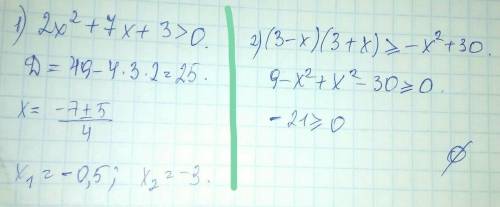 1) 2x² + 7x + 3 > 0.
D = 49 - 4·3·2 = 25.
x = (-7 ± 5) / 4
x₁ = -0,5; x₂ = -3.
2) (3-x)(3+x) ≥ -x² + 30.
9 - x² + x² - 30 ≥ 0.
-21 ≥ 0
∅